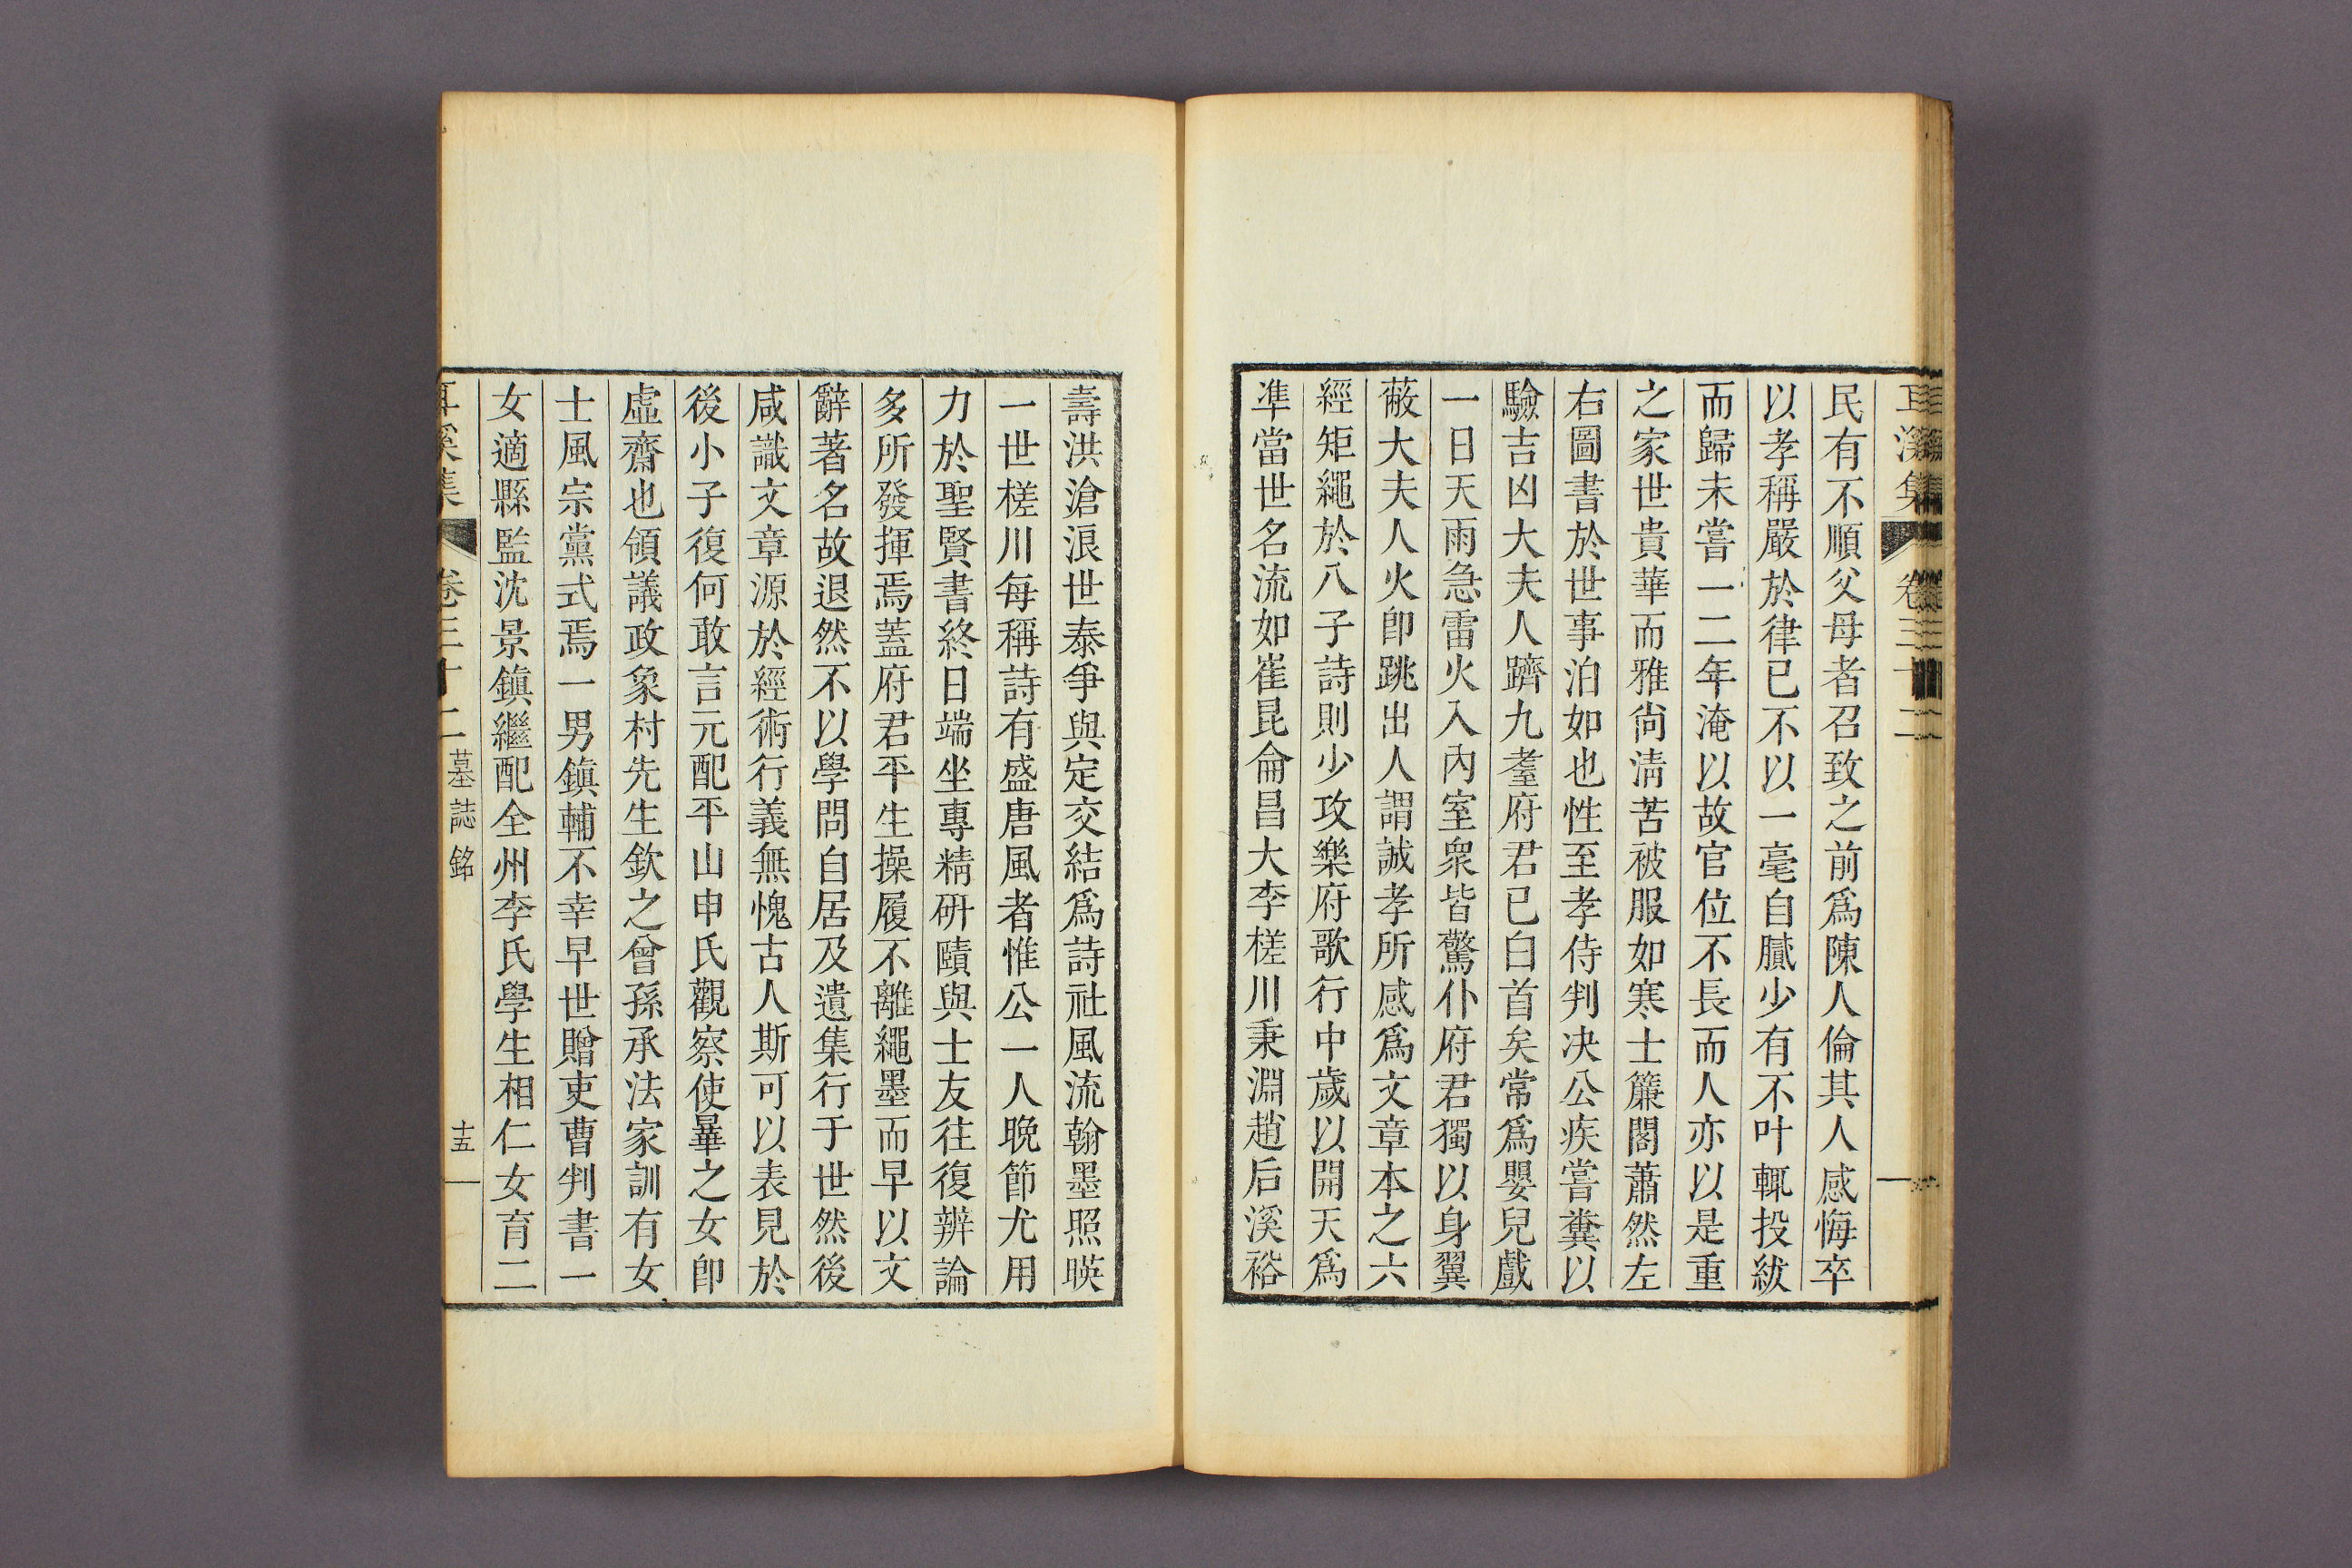 耳溪集 卷三十二
民有不順父母者召致之前爲陳人倫其人感悔卒
以孝稱嚴於律已不以一毫自膩少有不叶輒投紱
而歸未嘗一二年淹以故官位不長而人亦以是重
之家世貴華而雅尙淸苦被服如寒士簾閣蕭然左
右圖書於世事泊如也性至孝侍判决公疾嘗糞以
驗吉凶大夫人躋九耋府君已白首矣常爲嬰兒戱
一日天雨急雷火入內室衆皆驚仆府君獨以身翼
蔽大夫人火卽跳出人謂誠孝所感爲文章本之六
經矩繩於八子詩則少攻樂府歌行中歲以開天爲
準當世名流如崔昆侖昌大李槎川秉淵趙后溪裕
壽洪滄浪世泰爭與定交結爲詩社風流翰墨照暎
一世槎川每稱詩有盛唐風者惟公一人晩節尤用
力於聖賢書終日端坐專精硏賾與士友往復辨論
多所發揮焉蓋府君平生操履不離繩墨而早以文
辭著名故退然不以學問自居及遺集行于世然後
咸識文章源於經術行義無愧古人斯可以表見於
後小子復何敢言元配平山申氏觀察使㬅之女卽
虛齋也領議政象村先生欽之曾孫承法家訓有女
士風宗黨式焉一男鎭輔不幸早世贈吏曹判書一
女適縣監沈景鎭繼配全州李氏學生相仁女育二
耳溪集 卷三十二 墓誌銘 十五